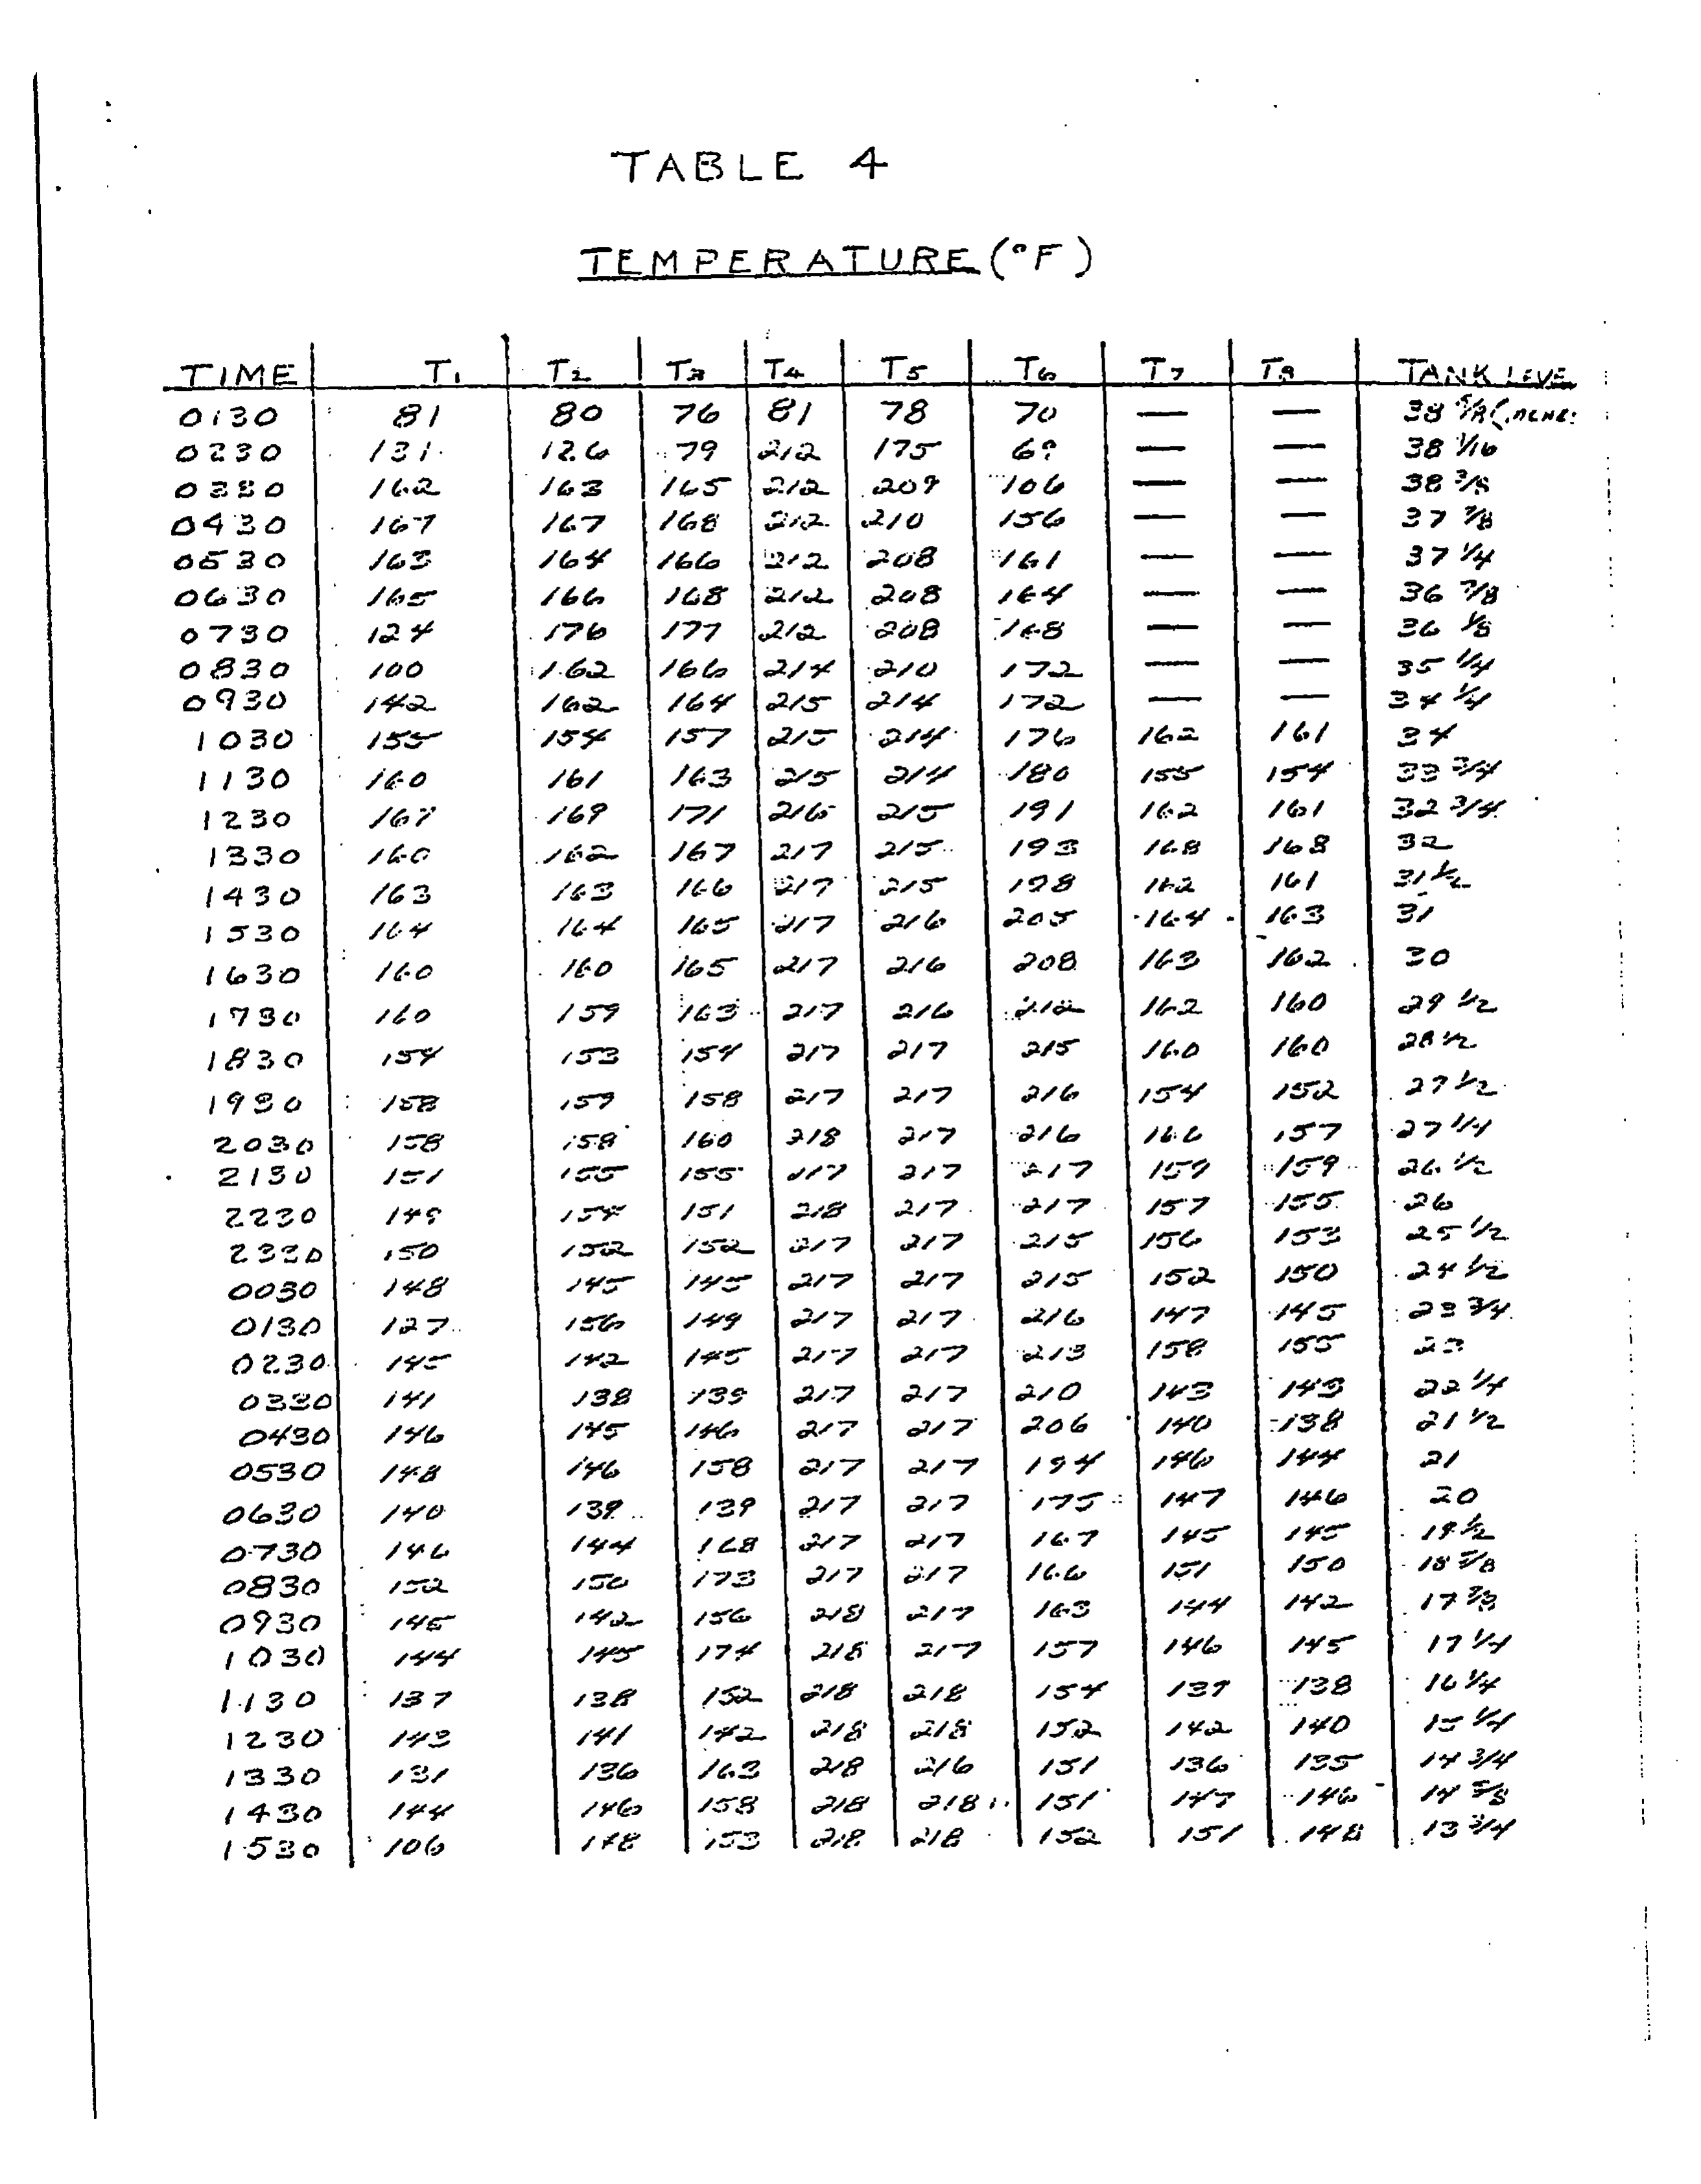 TABLE 4
TEMPERATURE (°F)
TIME T1 T2 T3 T4 T5 T6 T7 T8 TANK LEVE
0130 81 80 76 81 78 70 — — 38 5/8
0230 131 126 79 212 175 — — 38 1/16
0330 162 163 165 212 209 106 — — 38 3/8
0430 167 167 168 212 210 156 — — 37 7/8
0530 163 164 166 212 208 161 — — 37 1/4
0630 165 166 168 212 208 164 — — 36 7/8
0730 124 176 177 212 208 168 — — 36 1/8
0830 100 162 166 214 210 172 — — 35 1/4
0930 142 162 164 215 214 172 — — 34 1/4
1030 155 154 157 215 214 176 162 161 34
1130 160 161 163 215 214 180 155 154 33 3/4
1230 167 169 171 216 215 191 162 161 32 3/4
1330 160 162 167 217 215 193 168 168 32
1430 163 163 166 217 215 198 162 161 31 1/2
1530 164 164 165 217 216 205 164 163 31
1630 160 160 165 217 216 208 163 162 30
1730 160 159 163 217 216 212 162 160 29 1/2
1830 154 153 154 217 217 215 160 160 28 1/2
1930 158 157 158 217 217 216 154 152 27 1/2
2030 158 158 160 218 217 216 157 27 1/4
2130 151 155 155 217 217 217 159 159 26 1/2
2230 149 154 151 218 217 217 157 155 26
2330 150 152 152 217 217 215 156 153 25 1/2
0030 148 145 145 217 217 215 152 150 24 1/2
0130 127 156 149 217 217 216 147 145 23 3/4
0230 145 142 145 217 217 213 158 155 23
0330 141 138 139 217 217 210 143 143 22 1/4
0430 146 145 146 217 217 206 140 138 21 1/2
0530 148 146 158 217 217 194 146 144 21
0630 140 139 139 217 217 175 147 146 20
0730 146 144 168 217 217 167 145 145 19 1/2
0830 152 150 173 217 217 166 151 150 18 5/8
0930 145 142 156 218 217 163 144 142 17 7/8
1030 144 145 174 218 217 157 146 145 17 1/4
1130 137 138 152 218 218 154 139 138 16 1/4
1230 143 141 142 218 218 152 142 140 15 1/4
1330 131 136 163 218 216 151 136 135 14 3/4
1430 144 146 158 218 218 151 147 146 14 5/8
1530 106 148 153 218 218 152 151 148 13 3/4